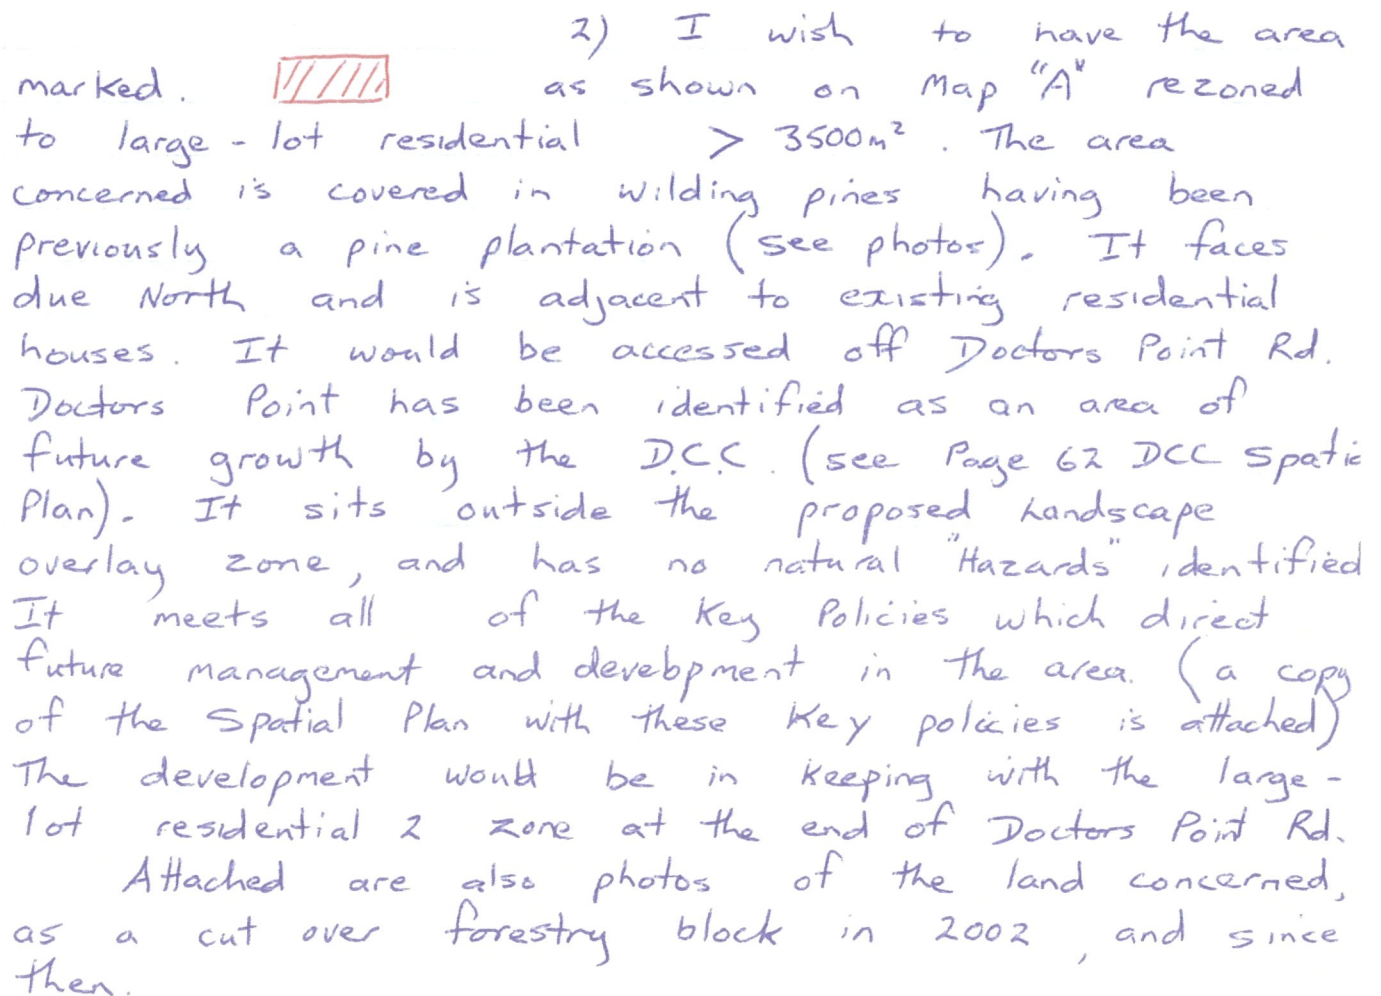 2) I wish to have the area
marked. as shown on Map "A" rezoned
to large - lot residential > 3500m². The area
concerned is covered in wilding pines having been
previously a pine plantation (see photos). It faces
due North and is adjacent to existing residential
houses. It would be accessed off Doctors Point Rd.
Doctors Point has been identified as an area of
future growth by the D.C.C. (see Page 62 DCC Spatic
Plan). It sits outside the proposed Landscape
overlay zone, and has no natural "Hazards" identified
It meets all of the Key Policies which direct
future management and development in the area. (a copy
of the Spatial Plan with these Key policies is attached)
The development would be in keeping with the large-
lot residential 2 zone at the end of Doctors Point Rd.
Attached are also photos of the land concerned,
as a cut over forestry block in 2002, and since
then.